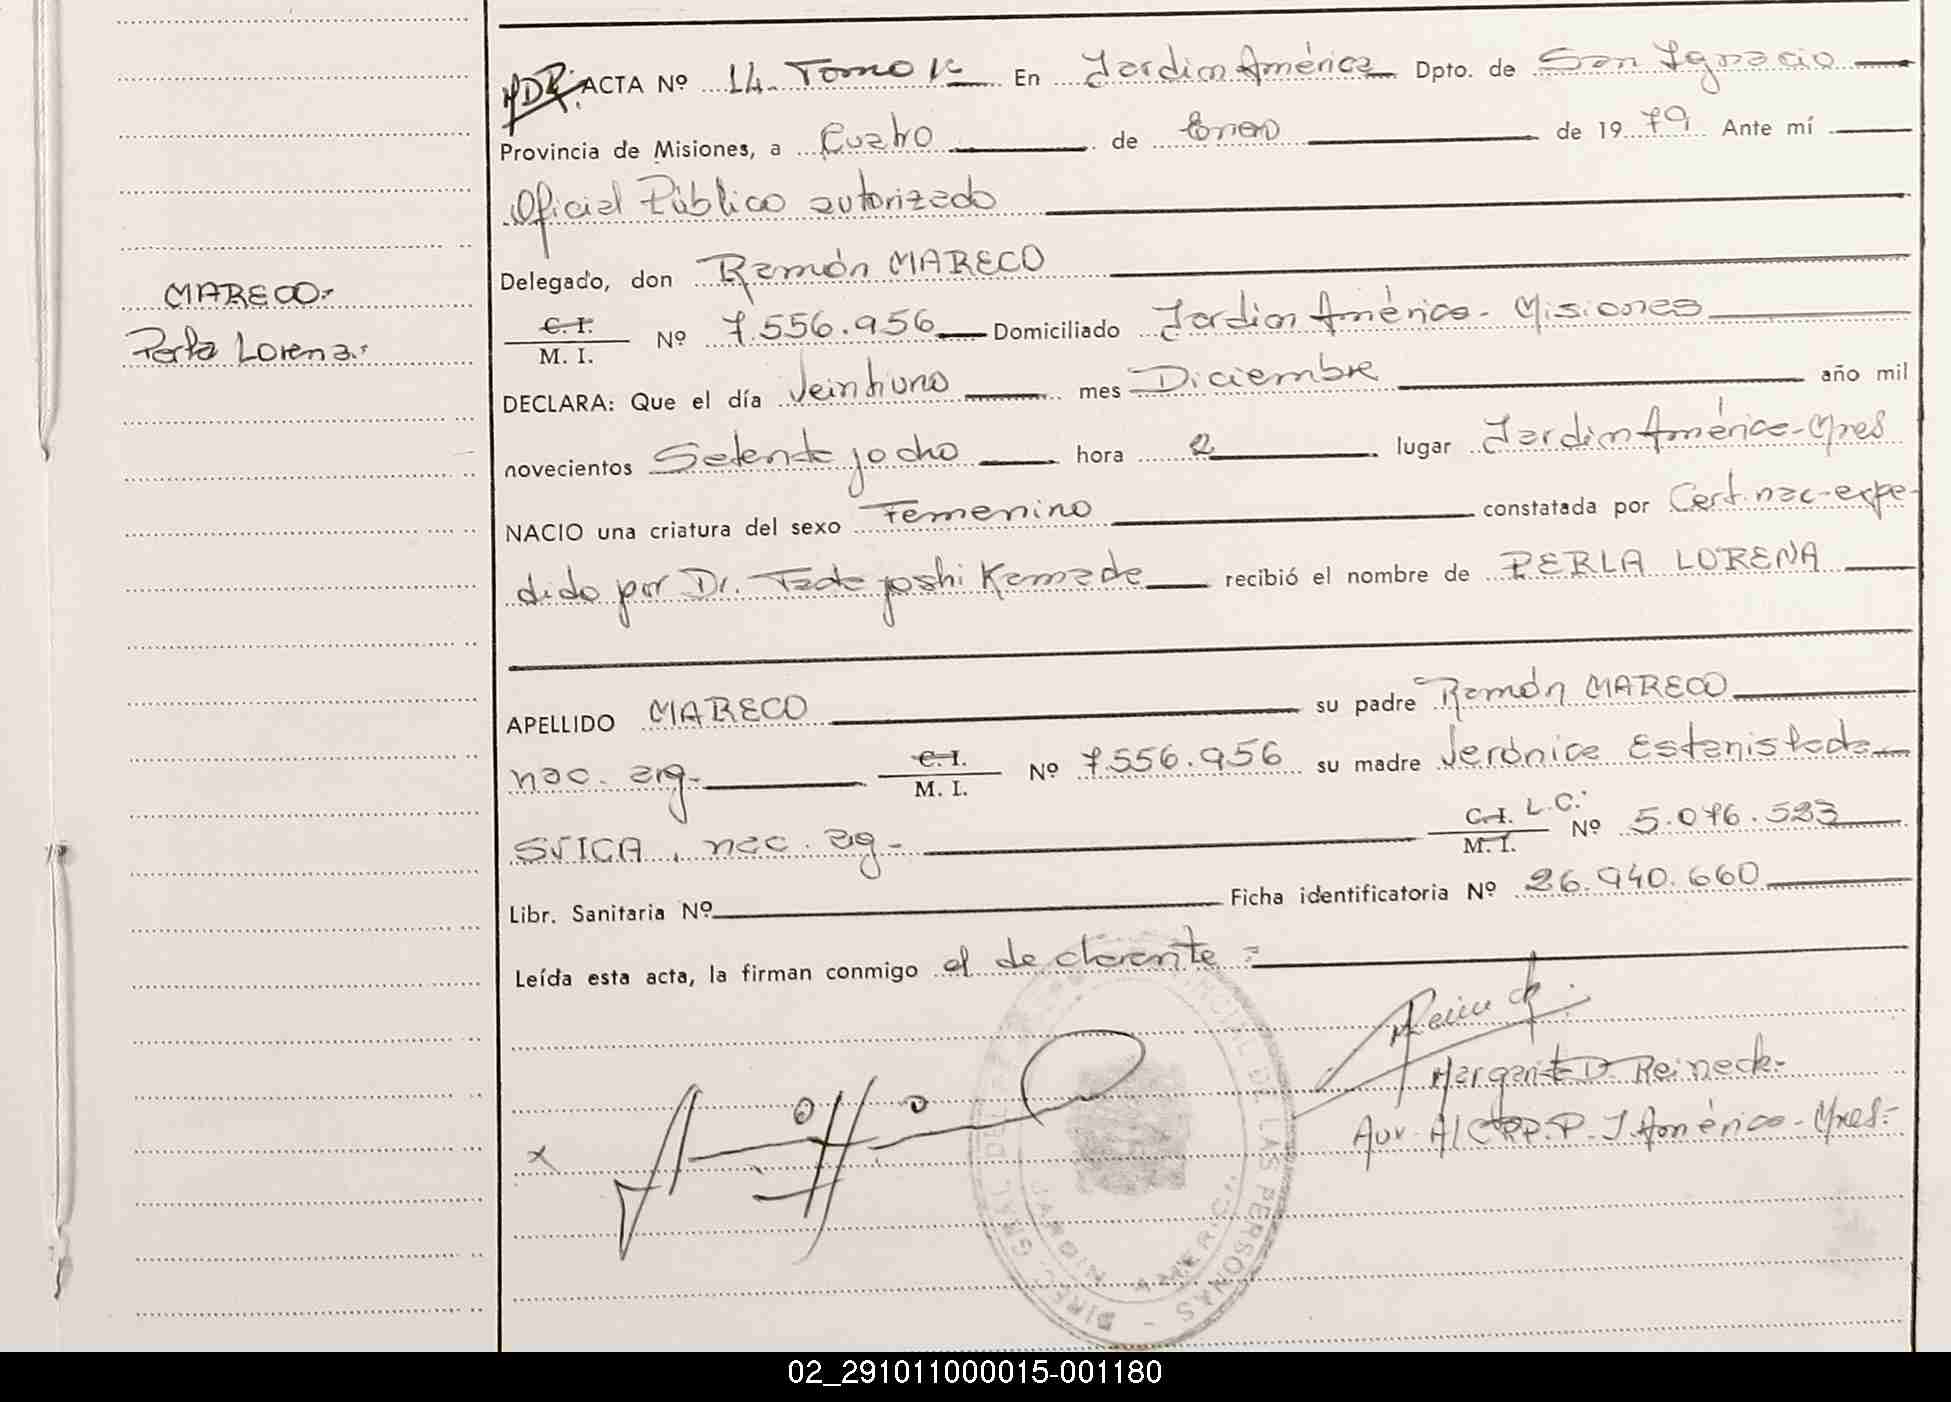 ACTA Nº 14. Tomo 1º En Jardin América Dpto. de San Ignacio
Provincia de Misiones, a Cuatro de Enero de 1979 Ante mí
Oficial Público autorizado
Delegado, don Ramón MARECO
MARECO:
Perla Lorena:
C. I.
M. I. Nº 7.556.956 Domiciliado Jardin América - Misiones
DECLARA: Que el día Veintiuno mes Diciembre año mil
novecientos Setenta y ocho hora 2 lugar Jardin América-Mnes
NACIO una criatura del sexo Femenino constatada por Cert. nac-expe-
dido por Dr. Tadayoshi Kamada recibió el nombre de PERLA LORENA
APELLIDO MARECO su padre Ramón MARECO
nac. arg- C. I.
M. I. Nº 7.556.956 su madre Verónica Estanislada
SVICA, nac. arg- C. I. L.C.
M. I. Nº 5.076.523
Libr. Sanitaria Nº Ficha identificatoria Nº 26.940.660
Leída esta acta, la firman conmigo el declarante =
x
Margarita D. Reineck-
Aux. A/C R.P.P. J. América - Mnes-
DIREC. GRAL. DEL REG. PROVINCIAL DE LAS PERSONAS -
JARDIN AMERICA
02_291011000015-001180